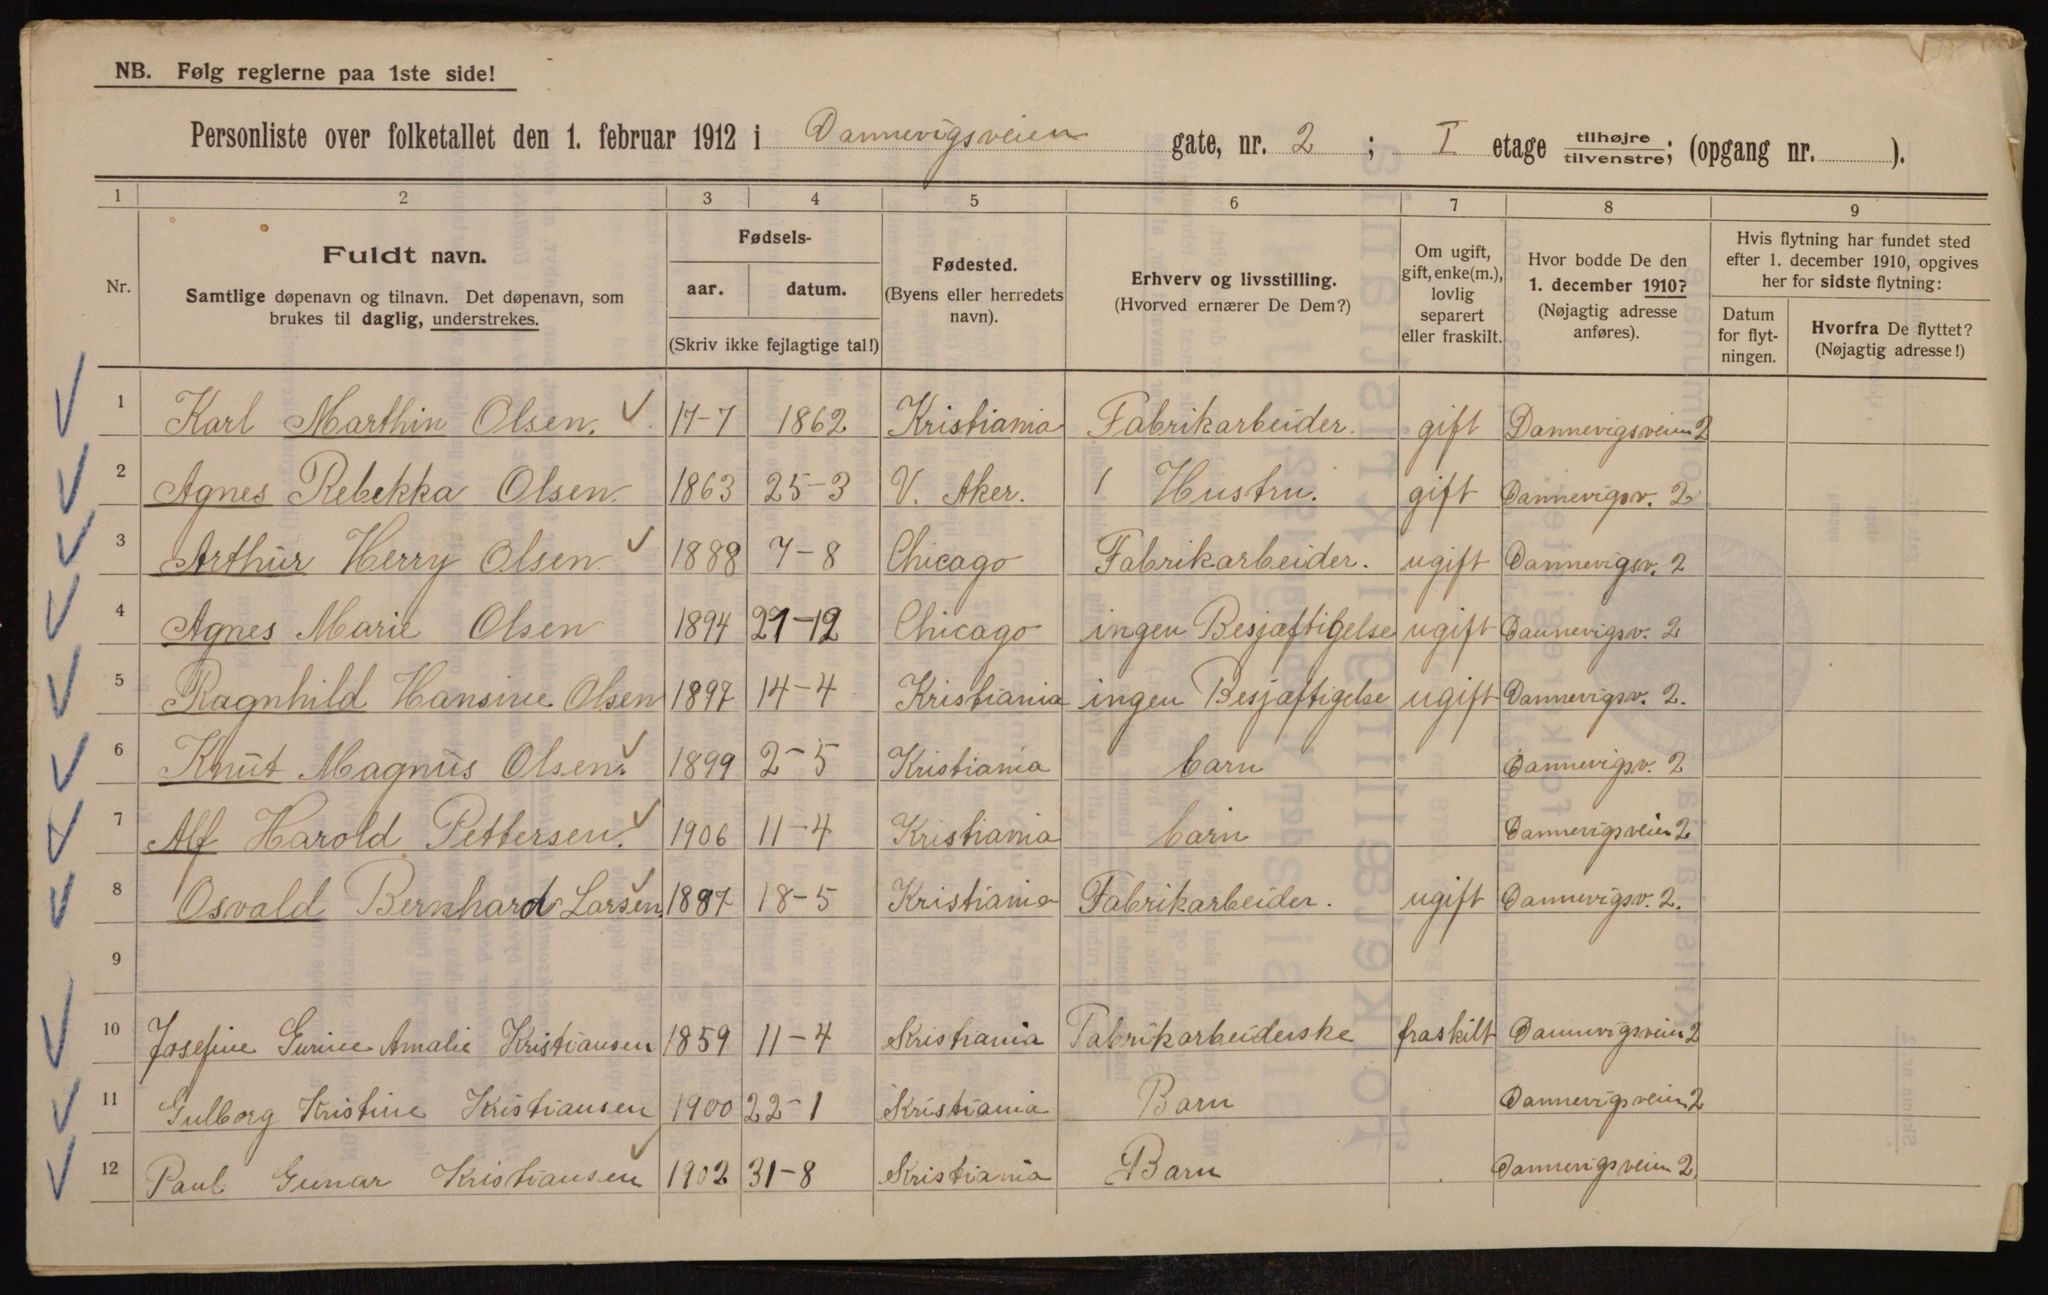 NB. Følg reglerne paa 1ste side!
Personliste over folketallet den 1. februar 1912 i Dannevigsveien gate, nr. 2 ; I etage tilhøjre tilvenstre; (opgang nr. ).
1 2 3 4 5 6 7 8 9
Nr.
Fuldt navn.
Samtlige døpenavn og tilnavn. Det døpenavn, som
brukes til daglig, understrekes.
Fødsels-
aar. datum.
(Skriv ikke fejlagtige tal!)
Fødested.
(Byens eller herredets
navn).
Erhverv og livsstilling.
(Hvorved ernærer De Dem?)
Om ugift,
gift, enke(m.),
lovlig
separert
eller fraskilt.
Hvor bodde De den
1. december 1910?
(Nøjagtig adresse
anføres).
Hvis flytning har fundet sted
efter 1. december 1910, opgives
her for sidste flytning:
Datum
for flyt-
ningen.
Hvorfra De flyttet?
(Nøjagtig adresse!)
1 Karl Marthin Olsen. 17-7 1862 Kristiania Fabrikarbeider. gift Dannevigsveien 2
2 Agnes Rebekka Olsen. 1863 25-3 V. Aker. Hustru. gift Dannevigsv. 2
3 Arthur Herry Olsen 1888 7-8 Chicago Fabrikarbeider. ugift Dannevigsv. 2
4 Agnes Marie Olsen 1894 -12 Chicago ingen Besjæftigelse ugift Dannevigsv. 2
5 Ragnhild Hansine Olsen 1897 14-4 Kristiania ingen Besjæftigelse ugift Dannevigsv. 2.
6 Knut Magnus Olsen. 1899 2-5 Kristiania barn Dannevigsv. 2
7 Alf Harold Pettersen. 1906 11-4 Kristiania barn Dannevigsveien 2
8 Osvald Bernhard Larsen 1887 18-5 Kristiania Fabrikarbeider. ugift Dannevigsv. 2.
9
10 Josefine Gurine Amalie Kristiansen 1859 11-4 Kristiania Fabrikarbeiderske fraskilt Dannevigsveien 2
11 Gulborg Kristine Kristiansen 1900 22-1 Kristiania Barn Dannevigsveien 2
12 Paul Gunar Kristiansen 1902 31-8 Kristiania Barn Dannevigsveien 2.